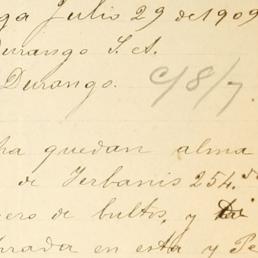 ga Julio 29 de 1909
Durango S. A.
Durango.
c/8/7.
ha quedan alma
de Yerbanis 254.
ero de bultos, y
brada en esta y Pe